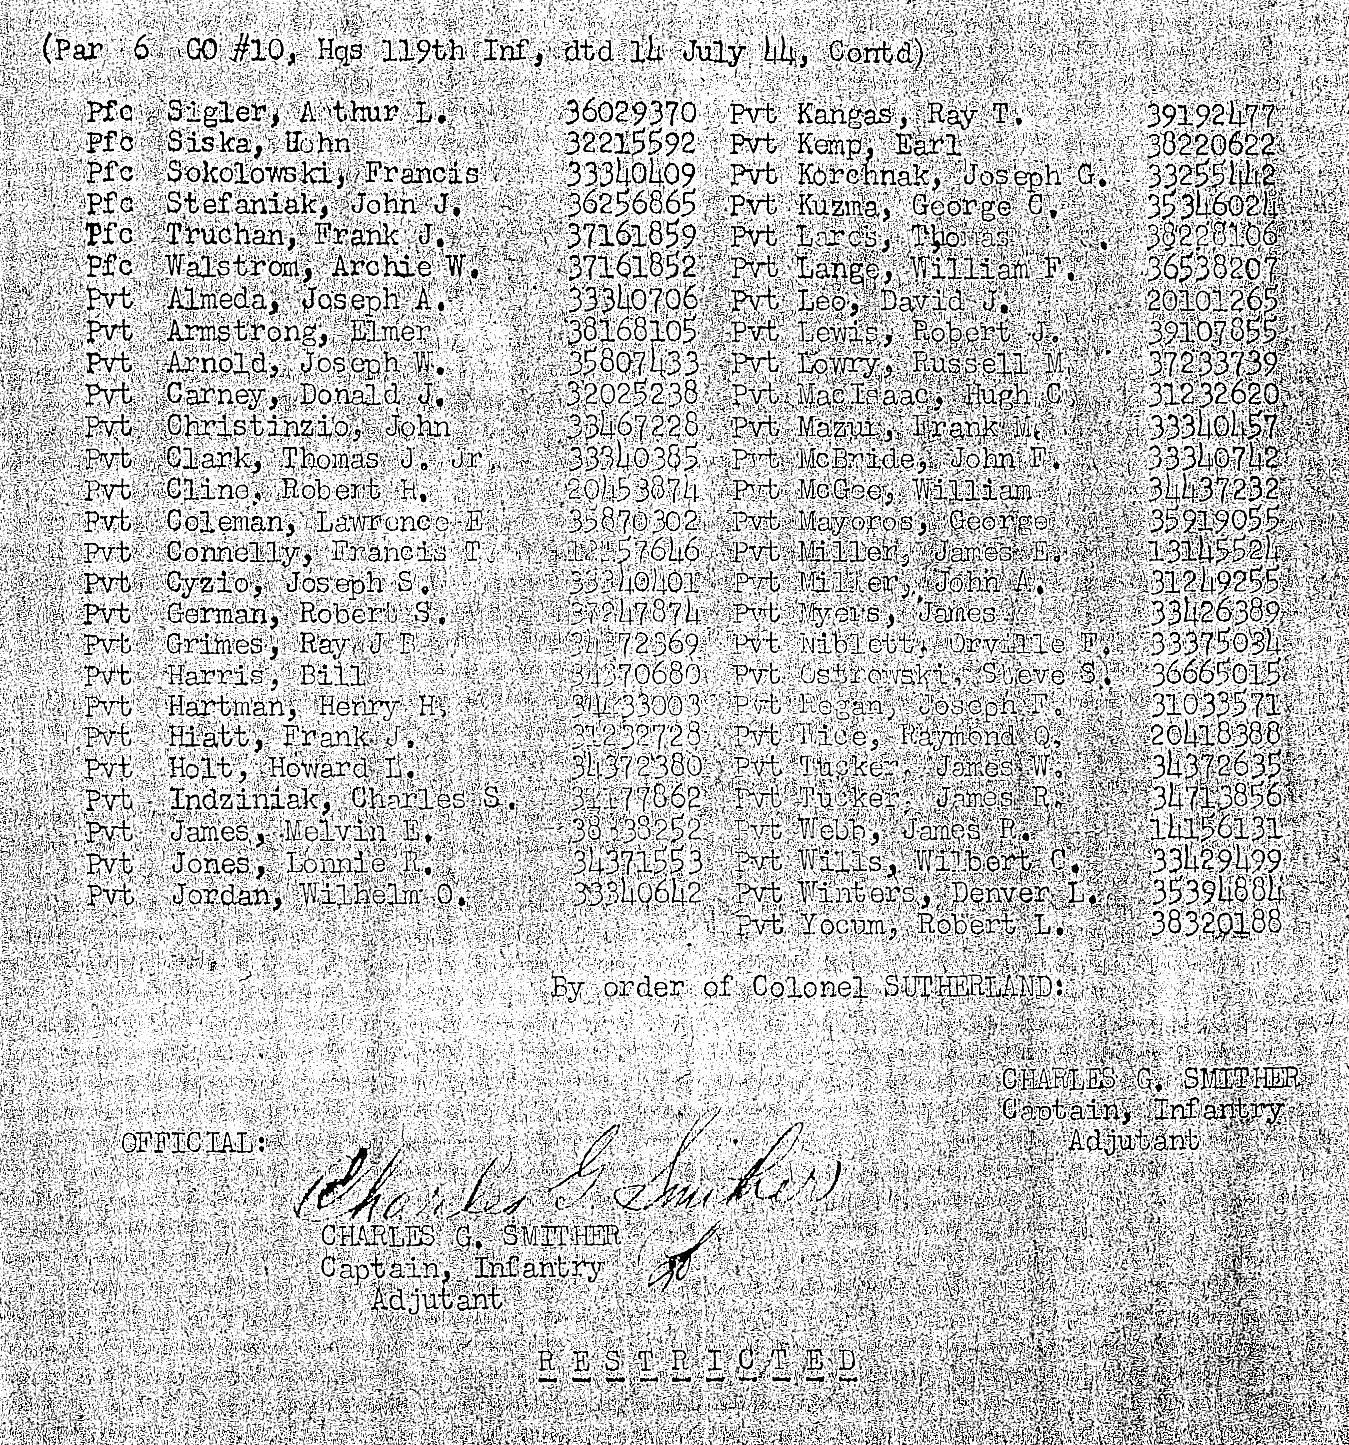 (Par 6 GO #10, Hqs 119th Inf, dtd 14 July 44, Contd)
Pfc Sigler, A thur L. 36029370 Pvt Kangas, Ray T. 39192477
Pfc Siska, Hohn 32215592 Pvt Kemp, Earl 38220622
Pfc Sokolowski, Francis 33340409 Pvt Korchnak, Joseph G. 33255442
Pfc Stefaniak, John J. 36256865 Pvt Kuzma, George C. 35346024
Pfc Truchan, Frank J. 37161859 Pvt Thomas 38228106
Pfc Walstrom, Archie W. 37161852 Pvt Lange, William F. 36538207
Pvt Almeda, Joseph A. 33340706 Pvt Leo, David J. 20101265
Pvt Armstrong, Elmer 38168105 Pvt Lewis, Robert J. 39107855
Pvt Arnold, Joseph W. 35807433 Pvt Lowry, Russell M 37233739
Pvt Carney, Donald J. 32025238 Pvt MacIsaac, Hugh C. 31232620
Pvt Christinzio, John 33467228 Pvt Mazui, Frank M. 33340457
Pvt Clark, Thomas J. Jr. 33340385 Pvt McBride, John F. 33340742
Pvt Cline, Robert H. 20453874 Pvt McGee, William 34437232
Pvt Coleman, Lawrence E 35870302 Pvt Mayoros, George 35919055
Pvt Connelly, Francis T. Pvt Miller, James E. 13145524
Pvt Cyzio, Joseph S. 33340401 Pvt Miller, John A. 31249255
Pvt German, Robert S. 37247874 Pvt Myers, James 33426389
Pvt Grimes, Ray J 34372369 Pvt Niblett, Orville F. 33375034
Pvt Harris, Bill 34370680 Pvt Ostrowski, Steve S. 36665015
Pvt Hartman, Henry H. 34433003 Pvt Regan, Joseph F. 31033571
Pvt Hiatt, Frank J. 31232728 Pvt Rice, Raymond Q. 20418388
Pvt Holt, Howard L. 34372380 Pvt Tucker, James W. 34372635
Pvt Indziniak, Charles S. Pvt Tucker, James R. 34713856
Pvt James, Melvin E. 38338252 Pvt Webb, James R. 14156131
Pvt Jones, Lonnie R. 34371553 Pvt Wills, Wilbert C. 33429499
Pvt Jordan, Wilhelm O. 33340642 Pvt Winters, Denver L. 35394884
Pvt Yocum, Robert L. 38320188
By order of Colonel SUTHERLAND:
CHARLES G. SMITHER
Captain, Infantry
Adjutant
OFFICIAL:
Charles G. Smither
CHARLES G. SMITHER
Captain, Infantry
Adjutant
R E S T R I C T E D